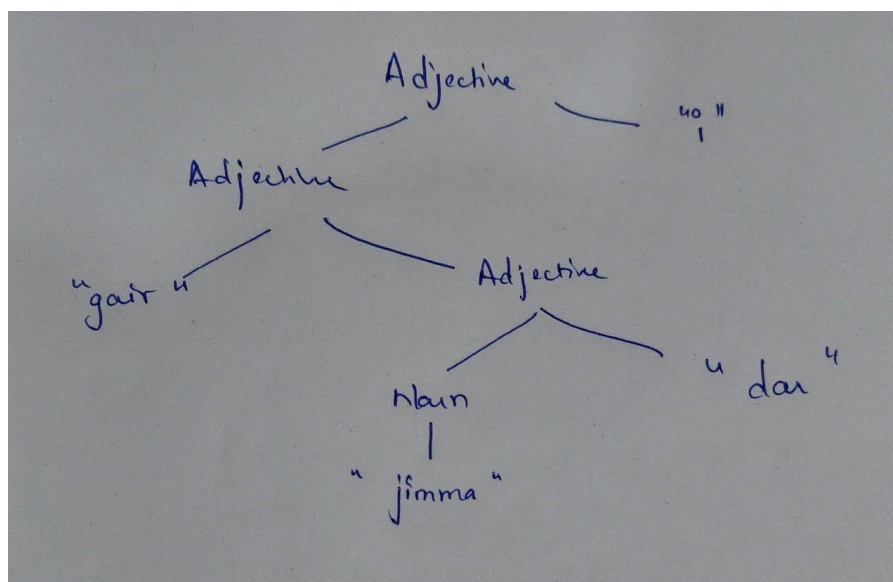 Adjective
"o"
Adjective
"gair"
Adjective
Noun
"dar"
"jimma"